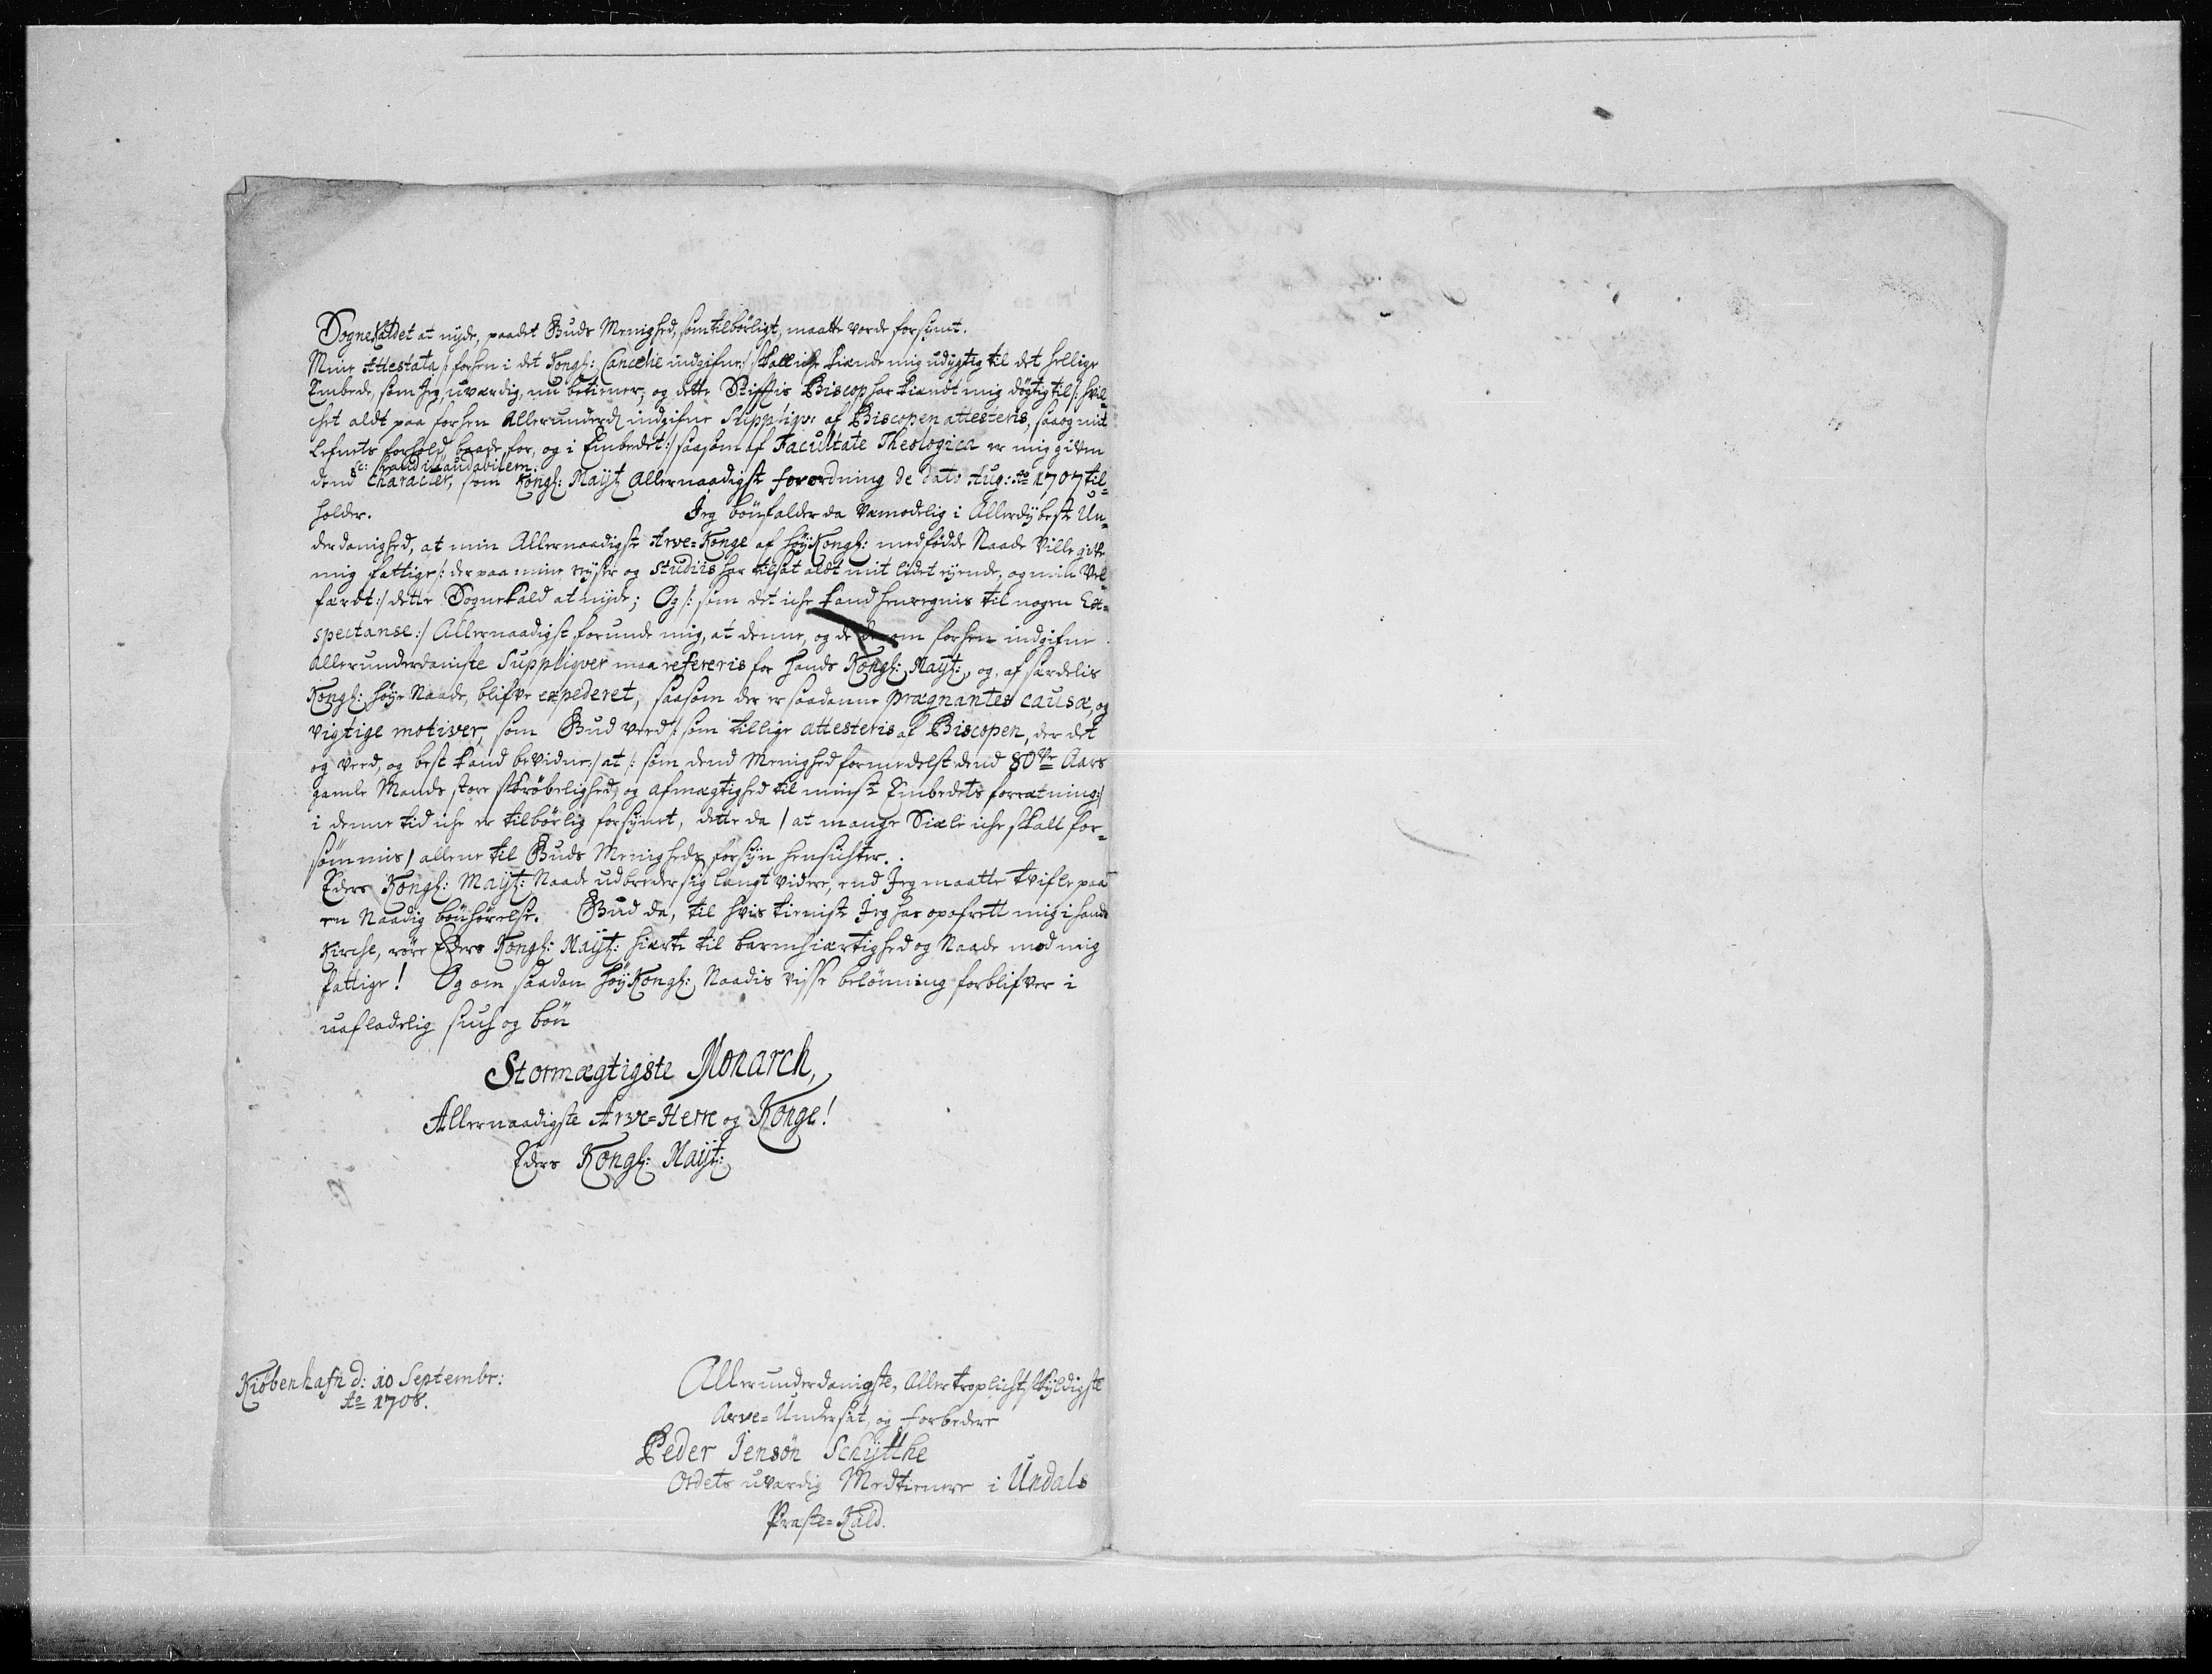 SogneKaldet at nyde, paadet Guds Menighed, som tilbörligt, maatte vorde forsynt.
Mine Attestata /: forhen i det Kongl: Cancelie indgifne :/ skall iche kiende mig udygtig til det hellige
Embede, som Jeg, uværdig, nu betiener; og dette Stifftis Biscop har kiendt mig dögtig til /: hvil-
chet aldt paa forhen Allerunderd indgifne Suppliqve af Biscopen attesteris, saa og mit
Lefnets forhold, baade for, og i Embedet :/ saasom af Facultate Theologica er mig given
sc: haud illaudabilem
dend Character, som Kongl: Mayt Allernaadigst forordning de dato Aug: Ao 1707 til-
holder. Jeg bönfalder da vemodelig i Allerdybeste Un-
derdanighed, at min Allernaadigste Arve-Konge af HöyKongl: medfödde Naade Ville give
mig fattige /: der paa mine rejser og Studiis har tilsat aldt mit lidet ejende, og min Vel-
færdt :/ dette Sognekald at nyde; Og /: som det iche kand henregnis til nogen Ex-
spectanse :/ Allernaadigst forunde mig, at denne, og de derom forhen indgifne
allerunderdanigste Suppliqver maa refereris for Hands Kongl: Mayt:, og, af særdelis
Kongl: höye Naade, blifve expederet, saasom der er saadanne prægnantes causæ, og
vigtige motiver, som Gud veed /: som tillige attesteris af Biscopen, der det
og veed, og best kand bevidne :/ at /: som dend Menighed formedelst dend 80ve Aars
gamle Mands store skröbelighed, og afmægtighed til minste Embedets forretning :/
i denne tid iche er tilbörlig forsynet, dette da / at mange Siæle iche skall for-
sömmis / allene til Guds Menigheds forsyn hensichter.
Eders Kongl: Mayt: Naade udbreder sig langt videre, end Jeg maatte tvifle paa
en Naadig bönhörelse. Gud da, til hvis tieniste Jeg har opofrett mig i hands
Kirche, röre Eders Kongl: Mayt: hierte til barmhiertighed og Naade mod mig
fattige! Og om saadan HöyKongl: Naadis visse belönning forblifver i
uafladelig such og bön
Stormægtigste Monarch,
Allernaadigste Arve-Herre og Konge!
Eders Kongl: Mayt:
Kiöbenhafn d: 10 Septembr:
Ao 1708.
Allerunderdanigste, Allertroplichtskyldigste
Arve-Undersat, og forbedere
Peder Jensön Schytthe
Ordets uværdig Medtienere i Undals
Præste-Kald.